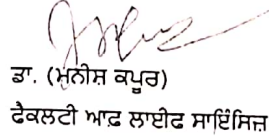 ਡਾ. (ਮੁਨੀਸ਼ ਕਪੂਰ)
ਫੈਕਲਟੀ ਆਫ਼ ਲਾਈਫ ਸਾਇੰਸਿਜ਼